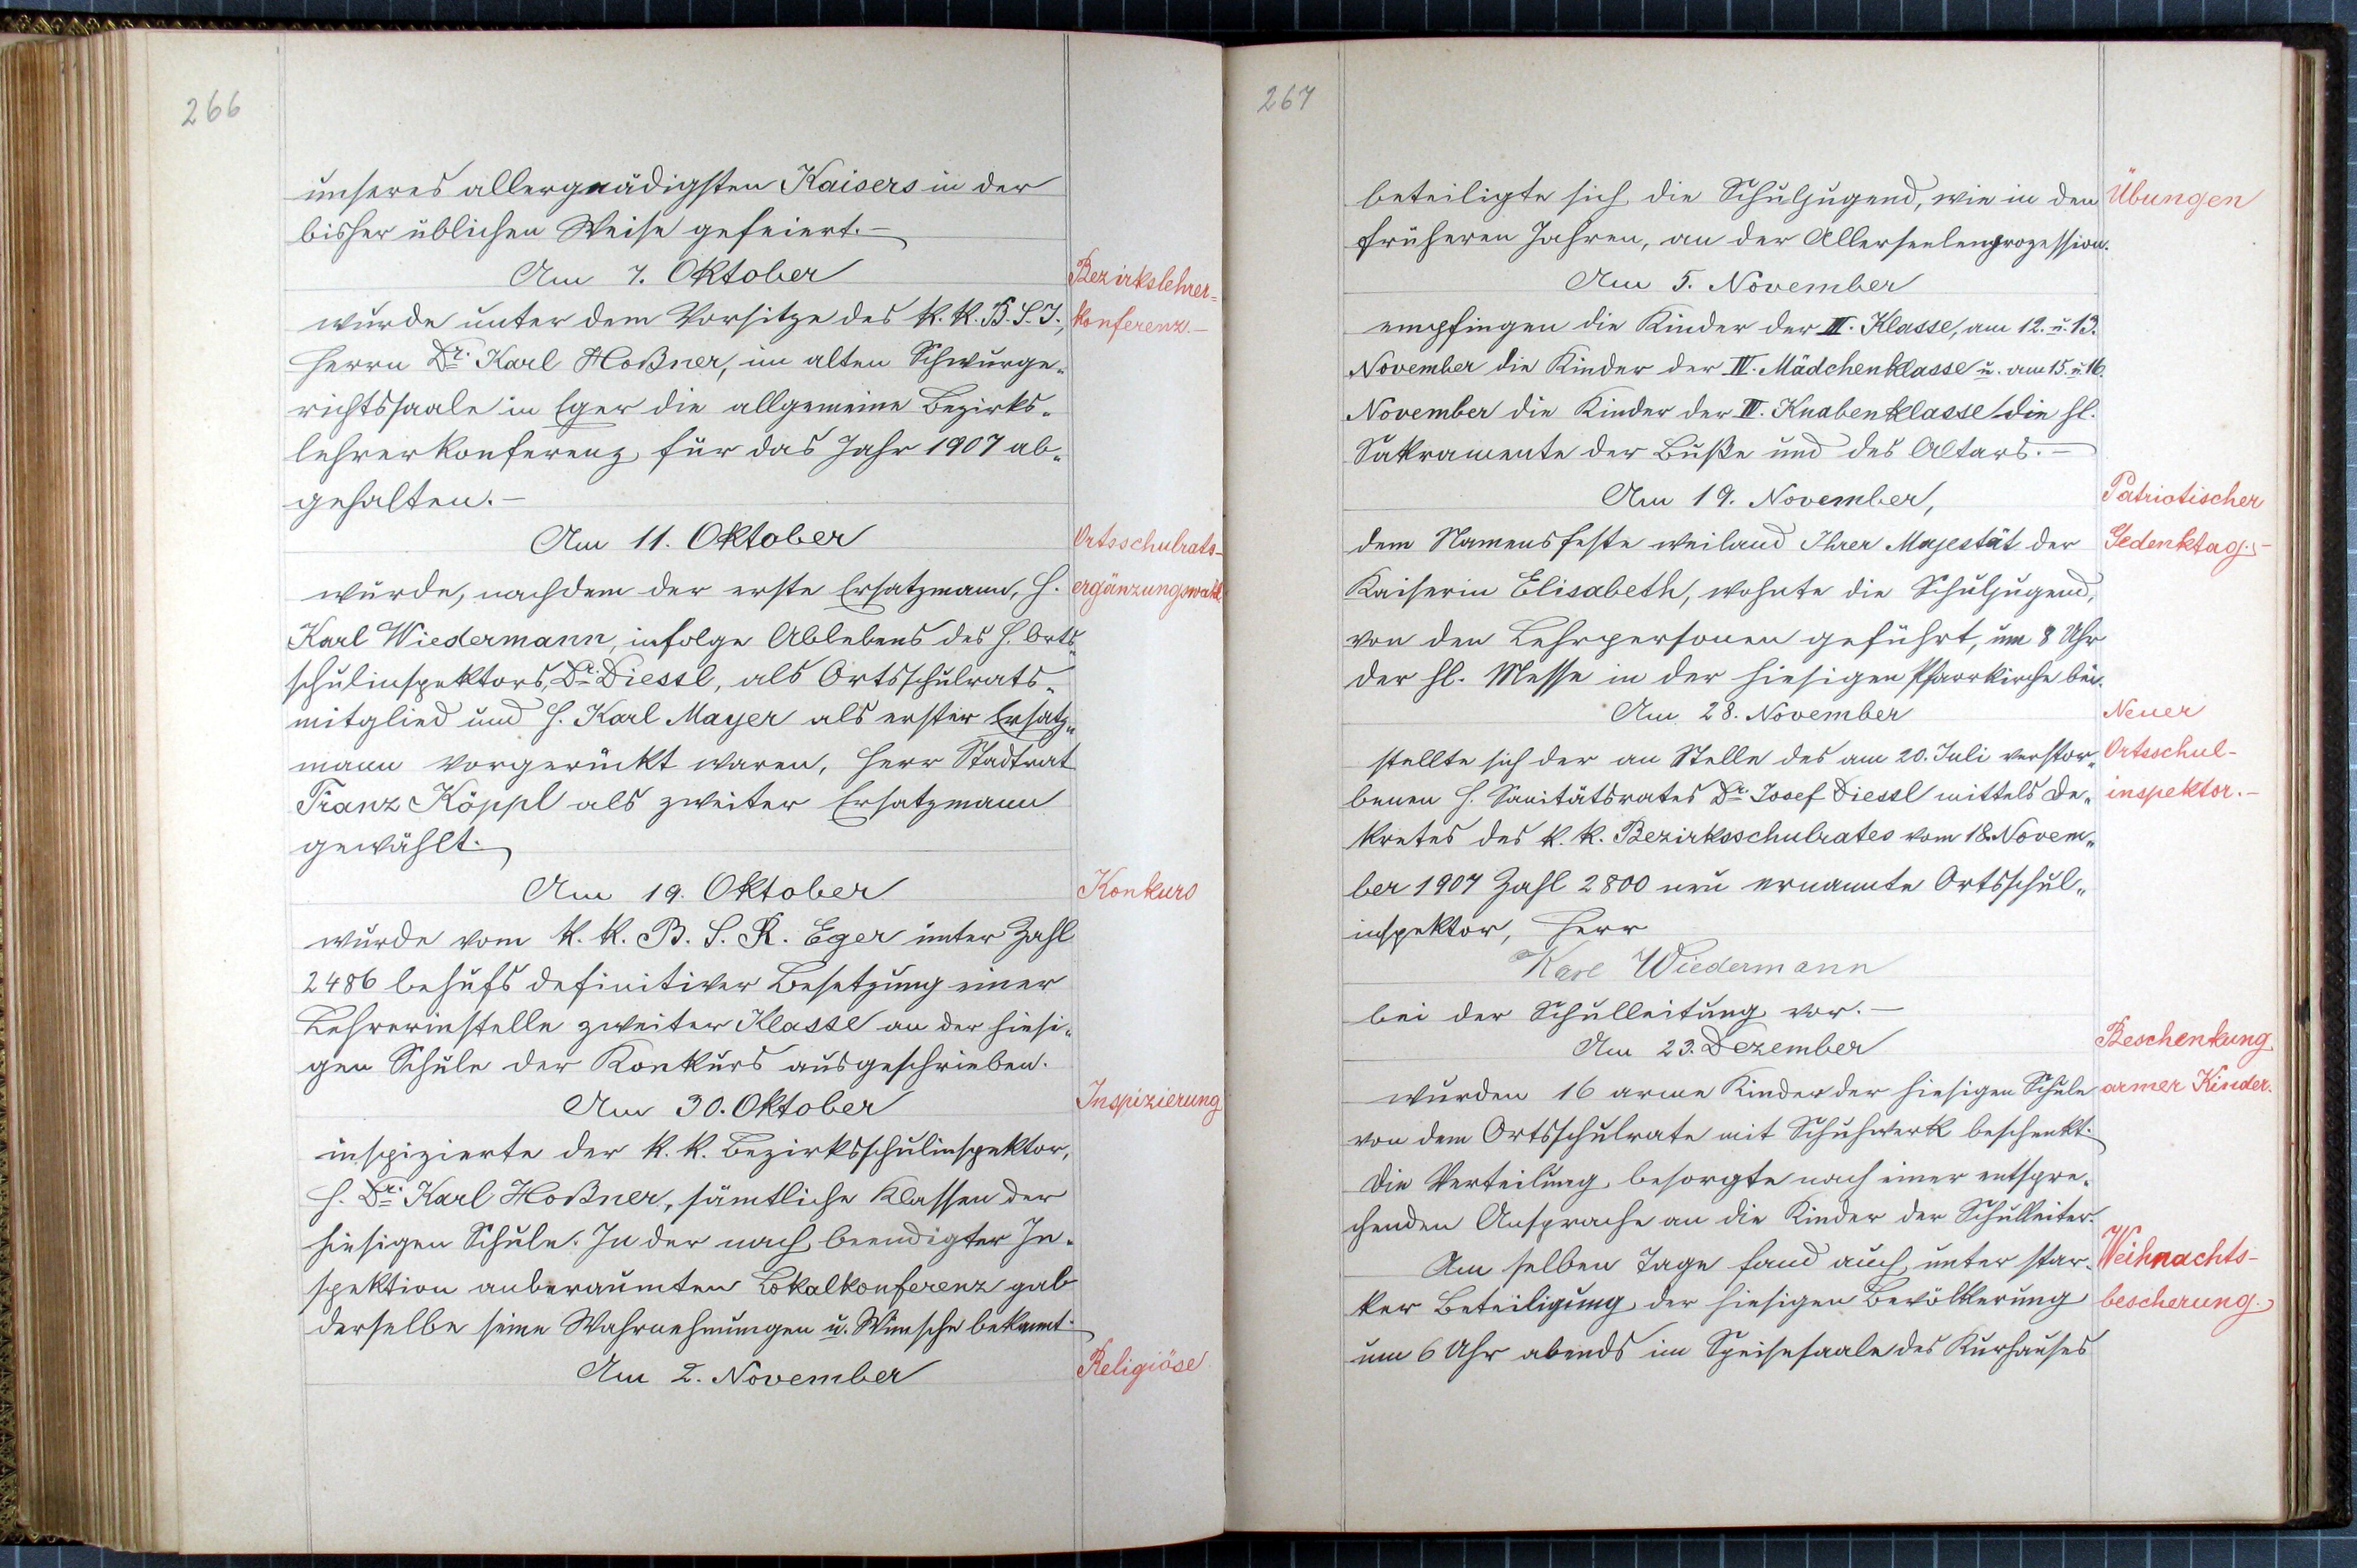 266
unseres allergnädigsten Kaisers in der
bisher üblichen Weise gefeiert.–
Am 7. Oktober
Bezirkslehrer=
wurde unter dem Vorsitze des k. k. B. S. I.,
konferenz.–
Herrn Dr. Karl Hoßner, im alten Schwurge-
richtssaale in Eger die allgemeine Bezirks-
lehrerkonferenz für das Jahr 1907 ab-
gehalten.–
Am 11. Oktober
Ortsschulrats-
wurde, nachdem der erste Ersatzmann, H.
ergänzungswahl
Karl Wiedermann, infolge Ablebens des H. Orts-
schulinspektors, Dr. Diessl, als Ortsschulrats-
mitglied und H. Karl Mayer als erster Ersatz-
mann vorgerückt waren, Herr Stadtrat
Franz Köppl als zweiter Ersatzmann
gewählt.
Am 19. Oktober
Konkurs
wurde vom k. k. B. S. R. Eger unter Zahl
2486 behufs definitiver Besetzung einer
Lehrerinstelle zweiter Klasse an der hiesi-
gen Schule der Konkurs ausgeschrieben.
Am 30. Oktober
Inspizierung
inspizierte der k. k. Bezirksschulinspektor,
H. Dr. Karl Hoßner, sämtliche Klassen der
hiesigen Schule. In der nach beendigter In-
spektion anberaumten Lokalkonferenz gab
derselbe seine Wahrnehmungen u. Wünsche bekannt.
Am 2. November
Religiöse
267
beteiligte sich die Schuljugend, wie in den
Übungen
früheren Jahren, an der Allerseelenprozession.
Am 5. November
empfingen die Kinder der III. Klasse, am 12. u. 13.
November die Kinder der IV. Mädchenklasse u. am 15. u. 16.
November die Kinder der IV. Knabenklasse die hl.
Sakramente der Buße und des Altars.–
Am 19. November,
Patriotischer
dem Namensfeste weiland Ihrer Majestät der
Gedenktag.–
Kaiserin Elisabeth, wohnte die Schuljugend,
von den Lehrpersonen geführt, um 8 Uhr
der hl. Messe in der hiesigen Pfarrkirche bei.
Am 28. November
Neuer
stellte sich der an Stelle des am 20. Juli verstor-
Ortsschul-
benen H. Sanitätsrates Dr. Josef Diessl mittels De-
inspektor.–
kretes des k. k. Bezirksschulrates vom 18. Novem-
ber 1907 Zahl 2800 neu ernannte Ortsschul-
inspektor, Herr
Karl Wiedermann
bei der Schulleitung vor.–
Am 23. Dezember
Beschenkung
wurden 16 arme Kinder der hiesigen Schule
armer Kinder.
von dem Ortsschulrate mit Schuhwerk beschenkt.
Die Verteilung besorgte nach einer entspre-
chenden Ansprache an die Kinder der Schulleiter.
Am selben Tage fand auch unter star-
Weihnachts-
ker Beteiligung der hiesigen Bevölkerung
bescherung.
um 6 Uhr abends im Speisesaale des Kurhauses